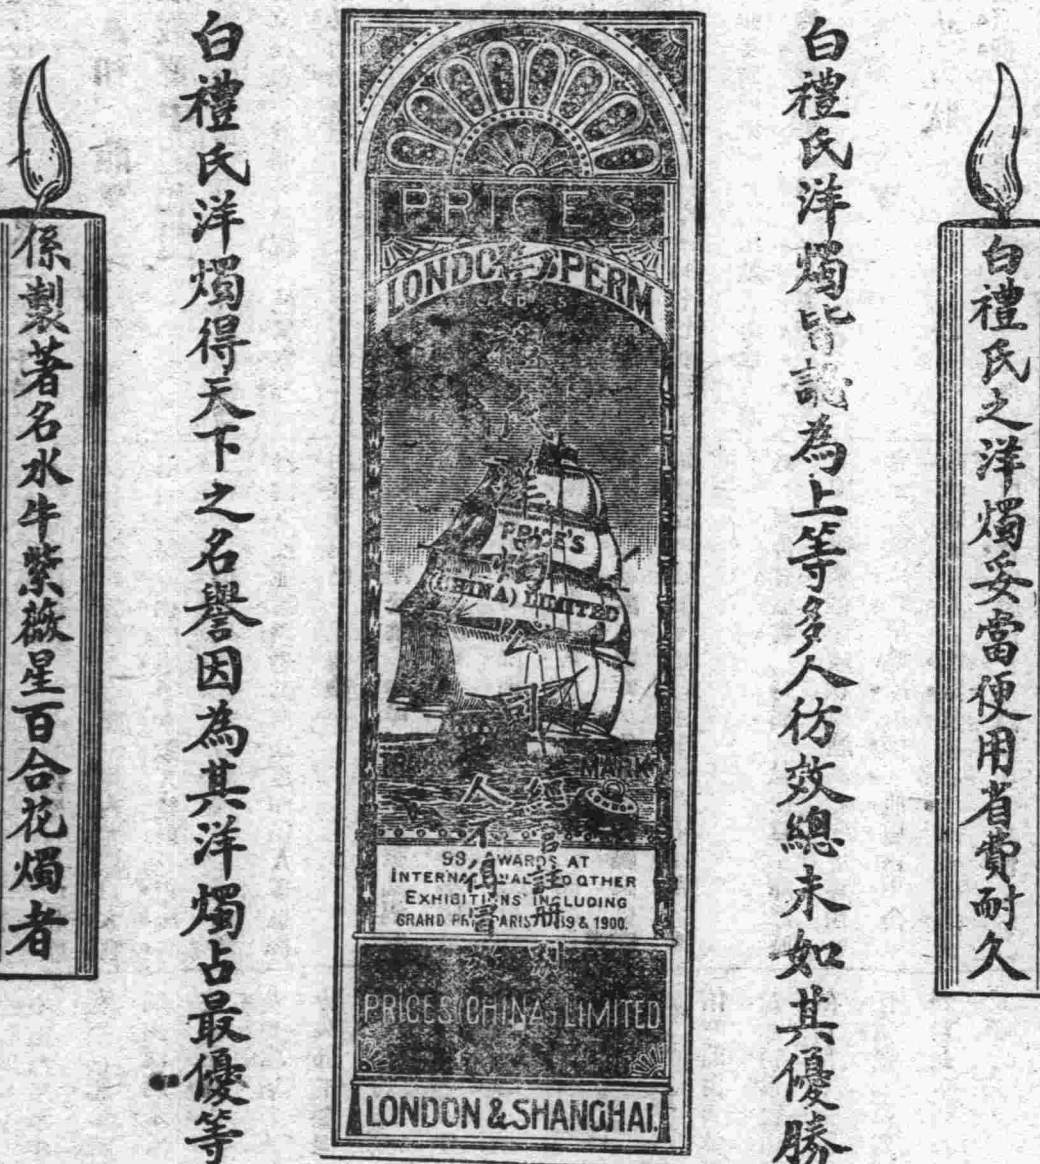 白禮氏之洋燭妥當便用省費耐久
白禮氏洋燭皆認為上等多人仿效總未如其優勝
PRICE'S
LONDON SPERM
PRICE'S
(CHINA) LIMITED
TRADE MARK
白禮氏洋燭公司
經官註冊別
人不得冒效
AWARDS AT
INTERNATIONAL AND OTHER
EXHIBITIONS INCLUDING
GRAND PRIX PARIS & 1900.
PRICES (CHINA) LIMITED
LONDON & SHANGHAI.
白禮氏洋燭得天下之名譽因為其洋燭占最優等
係製著名水牛紫薇星百合花燭者